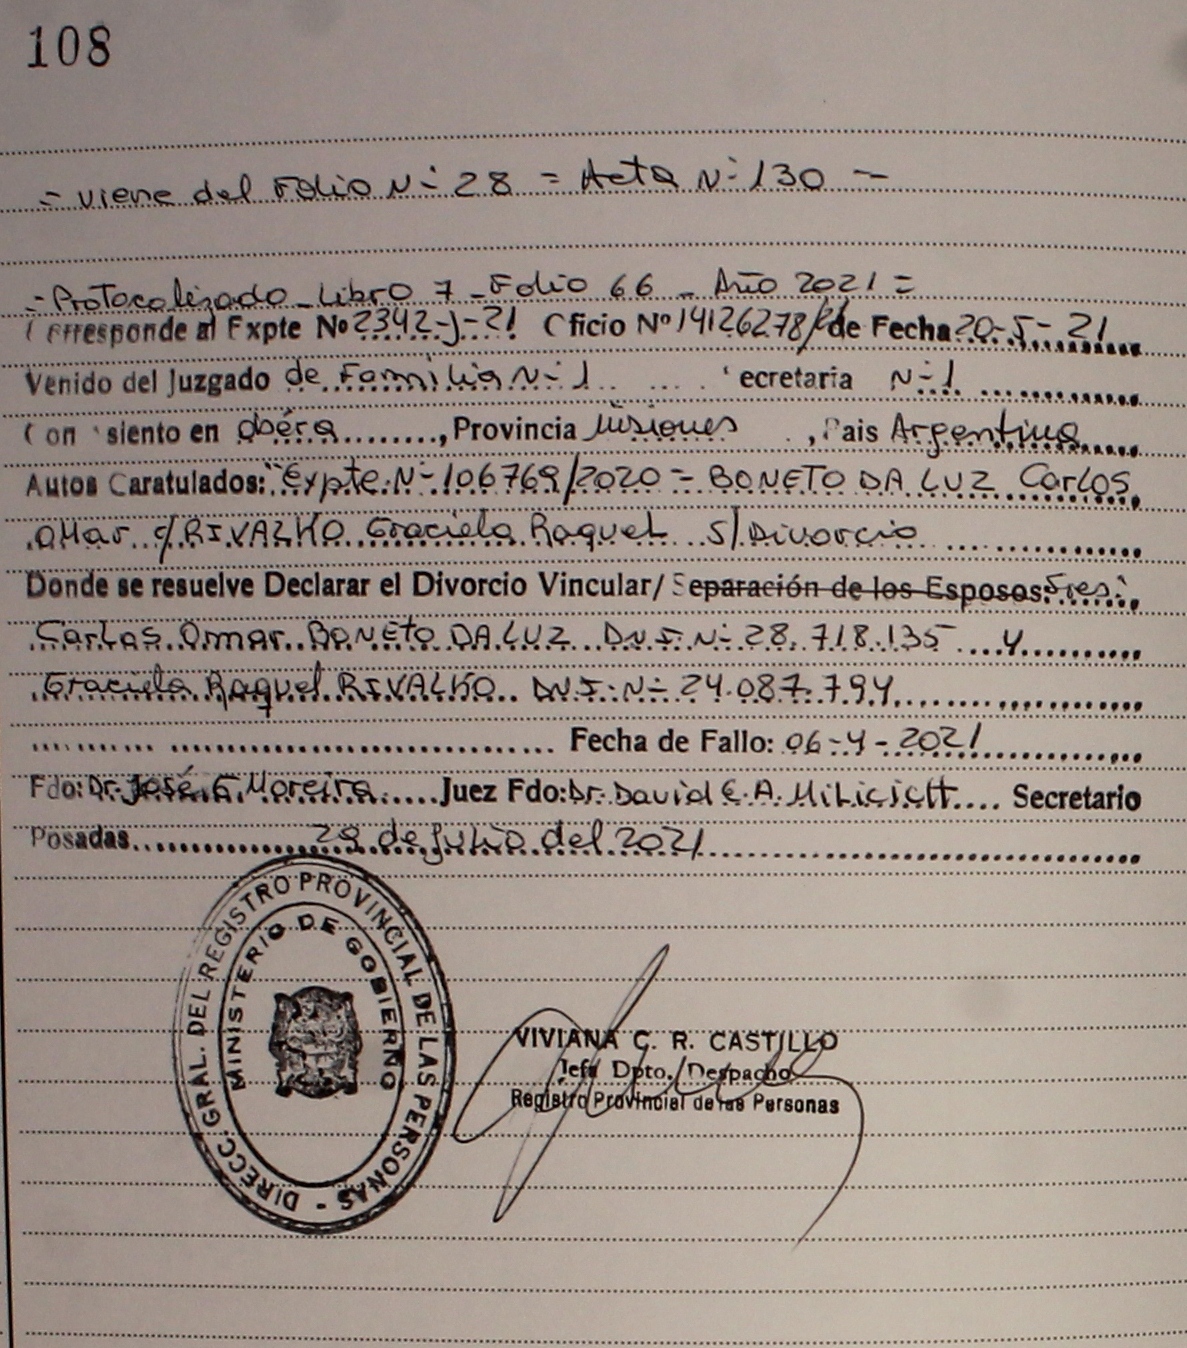 108
= viene del Folio N- 28 = Acta N- 130 -
=Protocolizado_Libro 7_Folio 66 _ Año 2021 =
Corresponde al Expte No 2342-J-21 Oficio Nº 14126278/ de Fecha 20-5-21
Venido del Juzgado de Familia N-1 Secretaria N-1
Con asiento en Oberá........, Provincia Misiones , Pais Argentina
Autos Caratulados: "Expte N-106769/2020 = BONETO DA LUZ Carlos
OMar c/RIVALKO Graciela Raquel S/Divorcio
Donde se resuelve Declarar el Divorcio Vincular/ Separación de los Esposos: Sres:
Carlos Omar BONETO DA LUZ D.N.I. N- 28.718.135 y
Graciela Raquel RIVALKO D.N.I. N- 24.087.794
Fecha de Fallo: 06-4-2021
Fdo: Dr. José G. Moreira.....Juez Fdo: Dr. David E. A. Milicich.... Secretario
Posadas.......29 de Julio del 2021
DIRECC. GRAL. DEL REGISTRO PROVINCIAL DE LAS PERSONAS -
MINISTERIO DE GOBIERNO
VIVIANA C. R. CASTILLO
Jefa Dpto. Despacho
Registro Provincial de las Personas